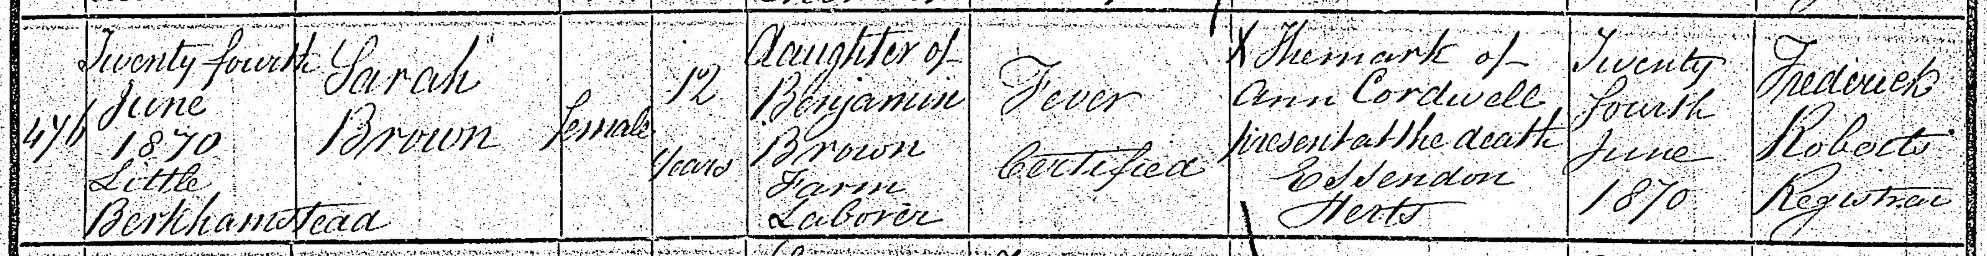 476
Twenty fourth
June
1870
Little
Berkhamstead
Sarah
Brown
female
12
Years
Daughter of
Benjamin
Brown
Farm
Laborer
Fever
Certified
X The mark of
Ann Cordwell
present at the death
Essendon
Herts
Twenty
fourth
June
1870
Frederick
Roberts
Registrar